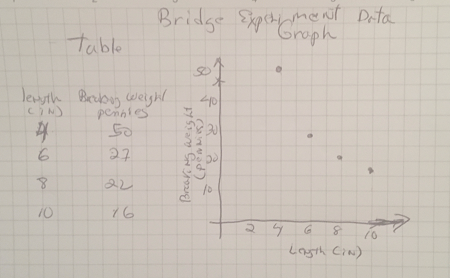 Bridge Experiment Data
Graph
Table
length
(in)
Breaking weight
pennies
4 50
6 27
8 22
10 16
Breaking weight
(pennies)
50
40
30
20
10
2 4 6 8 10
Length (in)